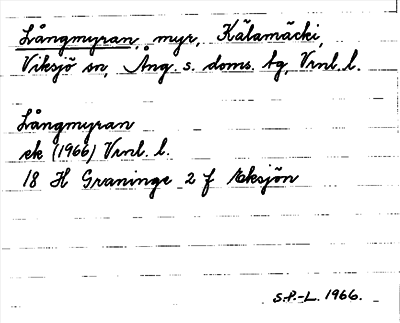 Långmyran, myr, Kälamäcki,
Viksjö sn, Ång. s. doms. tg, Vrnl. l.
Långmyran
ek (1966) Vrnl. l.
18 H Graninge 2 f Eksjön
S.P.-L. 1966.